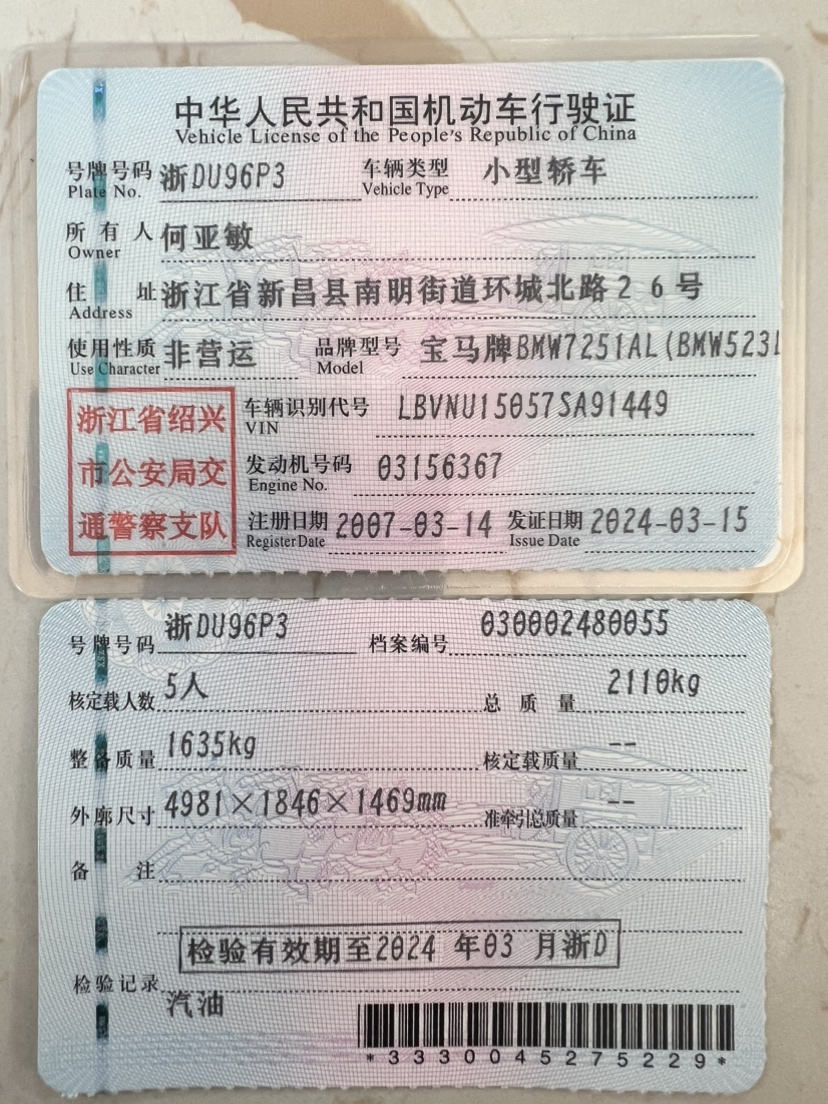 中华人民共和国机动车行驶证
Vehicle License of the People's Republic of China
号牌号码 浙DU96P3 车辆类型 小型轿车
Plate No. Vehicle Type
所有人 何亚敏
Owner
住址 浙江省新昌县南明街道环城北路26号
Address
使用性质 非营运 品牌型号 宝马牌BMW7251AL(BMW523L
Use Character Model
浙江省绍兴
市公安局交
通警察支队
车辆识别代号 LBVNU15057SA91449
VIN
发动机号码 03156367
Engine No.
注册日期 2007-03-14 发证日期 2024-03-15
Register Date Issue Date
号牌号码 浙DU96P3 档案编号 030002480055
核定载人数 5人 总质量 2110kg
整备质量 1635kg 核定载质量 --
外廓尺寸 4981×1846×1469mm 准牵引总质量 --
备注
检验有效期至2024年03月浙D
检验记录
汽油
*3330045275229*